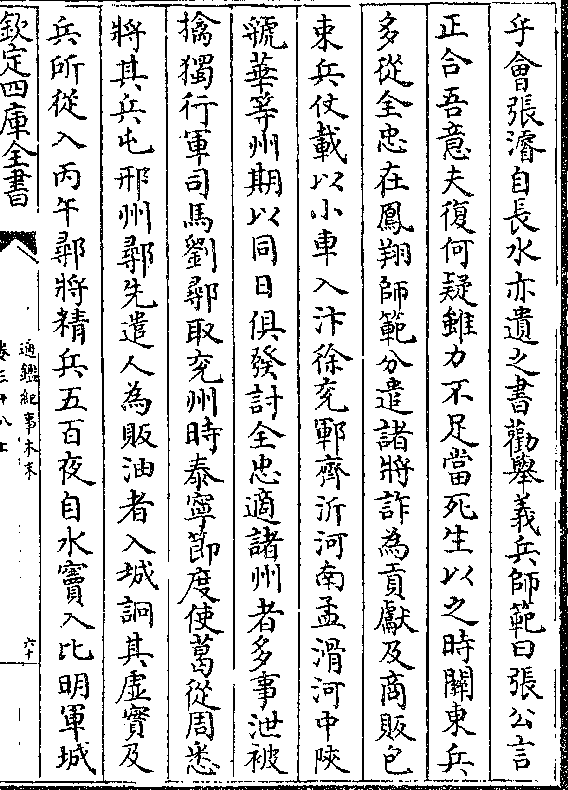 乎會張濬自長水亦遺之書勸舉義兵師範曰張公言
正合吾意夫復何疑雖力不足當死生以之時關東兵
多從全忠在鳳翔師範分遣諸將詐為貢獻及商販包
束兵仗載以小車入汴徐兗鄆齊沂河南孟滑河中陜
虢華等州期以同日俱發討全忠適諸州者多事泄被
擒獨行軍司馬劉鄩取兗州時泰寧節度使葛從周悉
將其兵屯邢州鄩先遣人為販油者入城詗其虛實及
兵所從入丙午鄩將精兵五百夜自水竇入比明軍城
欽定四庫全書
通鑑紀事本末
卷三十八上
六十